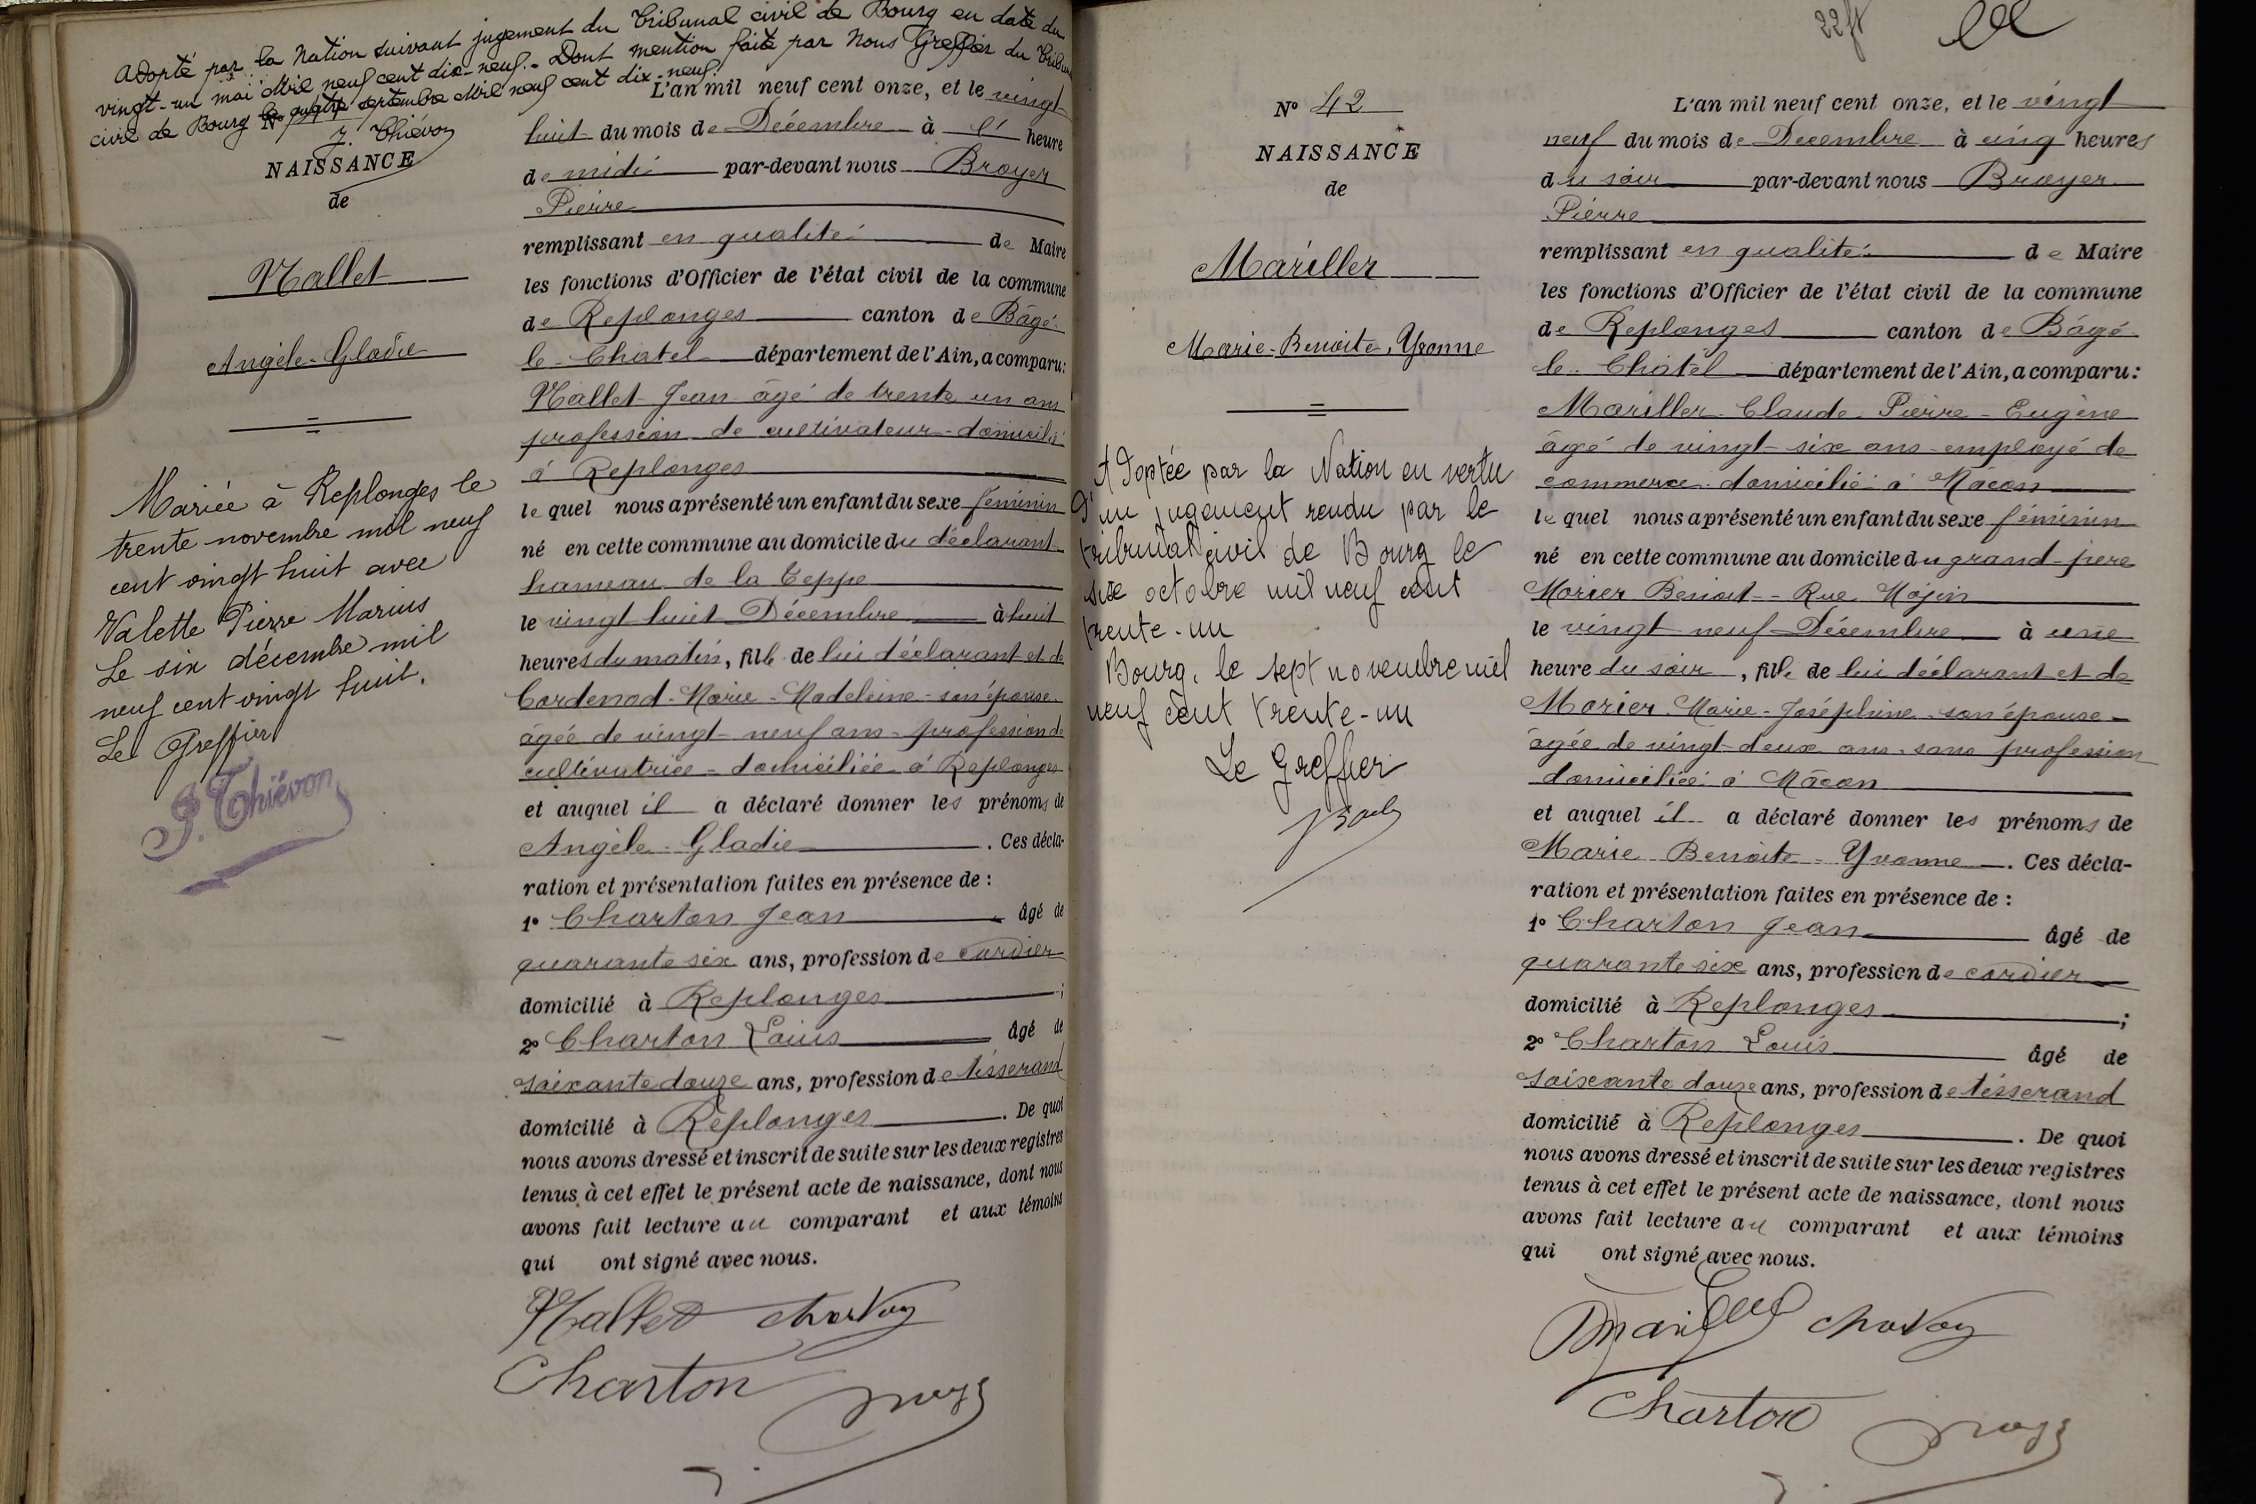 Adopté par la Nation suivant jugement du Tribunal civil de Bourg en date du
vingt-un mai Mil neuf cent dix-neuf.- Dont mention faite par Nous Greffier du Tribunal
civil de Bourg le quatre septembre Mil neuf cent dix-neuf.
No
J. Thiévon
NAISSANCE
de
Mallet
Angèle-Gladie
Mariée à Replonges le
trente novembre mil neuf
cent vingt huit avec
Valette Pierre Marius
Le six décembre mil
neuf cent vingt huit.
Le Greffier
P. Thiévon
L'an mil neuf cent onze, et le vingt
huit du mois de Décembre à l' heure
de midi par-devant nous Broyer
Pierre
remplissant en qualité de Maire
les fonctions d'Officier de l'état civil de la commune
de Replonges canton de Bâgé
le-Chatel département de l'Ain, a comparu:
Mallet Jean âgé de trente un ans
profession de cultivateur-domicilié
à Replonges
lequel nous a présenté un enfant du sexe féminin
né en cette commune au domicile du déclarant
hameau de la Teppe
le vingt huit Décembre à huit
heures du matin, fille de lui déclarant et de
Cordenod-Marie-Madeleine-son épouse
âgée de vingt-neuf ans-profession de
cultivatrice-domiciliée à Replonges
et auquel il a déclaré donner les prénoms de
Angèle-Gladie. Ces décla-
ration et présentation faites en présence de :
1o Charton Jean âgé de
quarante six ans, profession de cordier
domicilié à Replonges ;
2o Charton Louis âgé de
soixante douze ans, profession de tisserand
domicilié à Replonges. De quoi
nous avons dressé et inscrit de suite sur les deux registres
tenus à cet effet le présent acte de naissance, dont nous
avons fait lecture au comparant et aux témoins
qui ont signé avec nous.
Mallet Charton
Charton
22 ft
No 42
NAISSANCE
de
Mariller
Marie-Benoite, Yvonne
Adoptée par la Nation en vertu
d'un jugement rendu par le
tribunal civil de Bourg le
six octobre mil neuf cent
trente-un
Bourg, le sept novembre mil
neuf cent trente-un
Le Greffier
L'an mil neuf cent onze, et le vingt
neuf du mois de Décembre à cinq heures
du soir par-devant nous Broyer
Pierre
remplissant en qualité de Maire
les fonctions d'Officier de l'état civil de la commune
de Replonges canton de Bâgé
le-Chatel département de l'Ain, a comparu:
Mariller-Claude-Pierre-Eugène
âgé de vingt-six ans-employé de
commerce-domicilié à Mâcon
lequel nous a présenté un enfant du sexe féminin
né en cette commune au domicile du grand-père
Morier Benoit - Rue
le vingt neuf Décembre à une
heure du soir, fille de lui déclarant et de
Morier-Marie-Joséphine-son épouse-
âgée de vingt-deux ans-sans profession
domiciliée à Mâcon
et auquel il a déclaré donner les prénoms de
Marie-Benoite-Yvonne. Ces décla-
ration et présentation faites en présence de :
1o Charton Jean âgé de
quarante six ans, profession de cordier
domicilié à Replonges ;
2o Charton Louis âgé de
soixante douze ans, profession de tisserand
domicilié à Replonges. De quoi
nous avons dressé et inscrit de suite sur les deux registres
tenus à cet effet le présent acte de naissance, dont nous
avons fait lecture au comparant et aux témoins
qui ont signé avec nous.
Mariller Charton
Charton